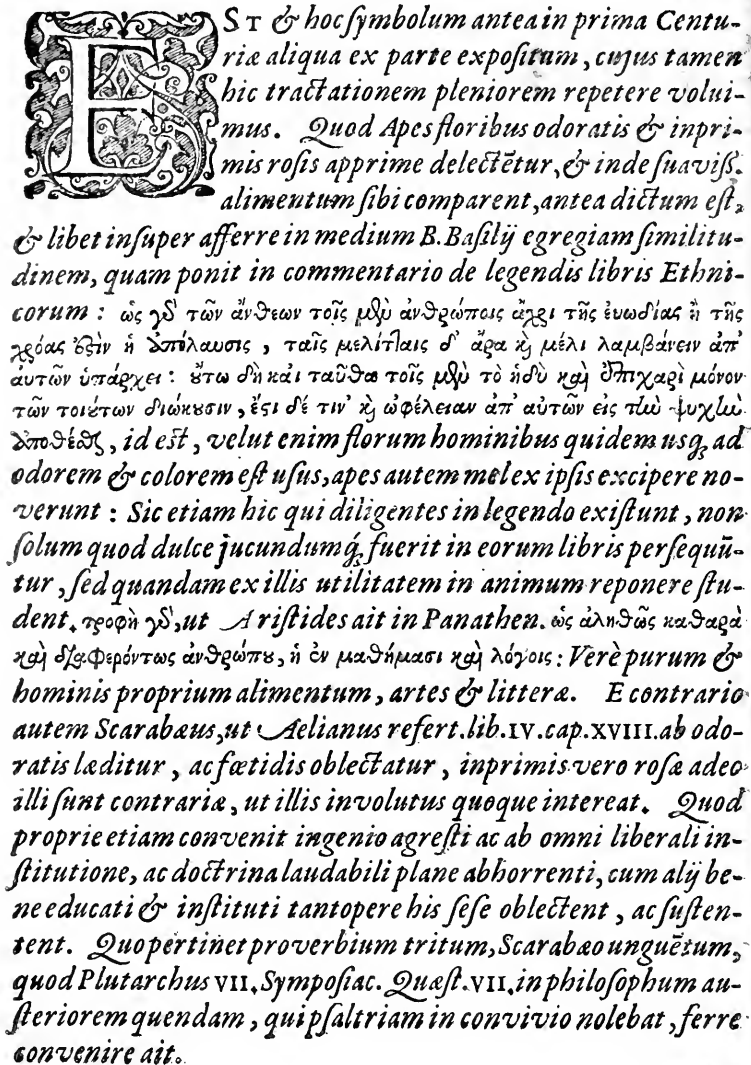 EST & hoc ſymbolum antea in prima Centu-
riæ aliqua ex parte expoſitum, cujus tamen
hic tractationem pleniorem repetere volui-
mus. Quod Apes floribus odoratis & inpri-
mis roſis apprime delectẽtur, & inde ſuaviſſ.
alimentum ſibi comparent, antea dictum eſt,
& libet inſuper afferre in medium B. Baſilij egregiam ſimilitu-
dinem, quam ponit in commentario de legendis libris Ethni-
corum: ὡς γδ τῶν ἄνθεων τοῖς μὲν ἀνθρώποις ἄχρι τῆς ἐυωδίας ἢ τῆς
χρόας ϛὶν ἡ ἀπόλαυσις, ταῖς μελίτlαις δ' ἄρα ϗ μέλι λαμβάνειν ἀπ'
ἀυτῶν ὑπάρχει: ȣτω δὴ καὶ ταῦθα τοῖς μὲν τὸ ἡδὺ καὶ ἐπιχαρὶ μόνον
τῶν τοιȣτων διώκȣσιν, ἔϛι δέ τιν' ϗ ὠφέλειαν ἀπ' αὐτῶν εις τὴν ψυχὴν
ἀποθέᾶς, id eſt, velut enim florum hominibus quidem usq; ad
odorem & colorem eſt uſus, apes autem mel ex ipſis excipere no-
verunt: Sic etiam hic qui diligentes in legendo exiſtunt, non
ſolum quod dulce jucundumq́; fuerit in eorum libris perſequũ-
tur, ſed quandam ex illis utilitatem in animum reponere ſtu-
dent. τροφὴ γδ, ut Ariſtides ait in Panathen. ὡς ἀληθῶς καθαρὰ
καὶ διαφερόντως ἀνθρώπȣ, ἡ ἐν μαθήμασι καὶ λόγοις: Verè purum &
hominis proprium alimentum, artes & litteræ. E contrario
autem Scarabæus, ut Aelianus refert. lib. IV. cap. XVIII. ab odo-
ratis læditur, ac fœtidis oblectatur, inprimis vero roſæ adeo
illi ſunt contrariæ, ut illis involutus quoque intereat. Quod
proprie etiam convenit ingenio agreſti ac ab omni liberali in-
ſtitutione, ac doctrina laudabili plane abhorrenti, cum alij be-
ne educati & inſtituti tantopere his ſeſe oblectent, ac ſuſten-
tent. Quo pertinet proverbium tritum, Scarabæo unguẽtum,
quod Plutarchus VII. Sympoſiac. Quæſt. VII. in philoſophum au-
ſteriorem quendam, qui pſaltriam in convivio nolebat, ferre
convenire ait.